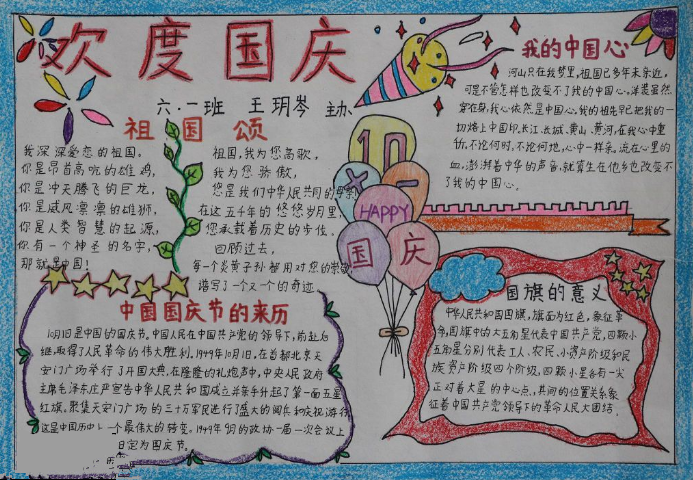 欢度国庆
六·一班 王玥岑 主办
祖国颂
我深深爱恋的祖国。
你是昂首高吭的雄鸡,
你是冲天腾飞的巨龙,
你是威风凛凛的雄狮,
你是人类智慧的起源,
你有一个神圣的名字,
那就是中国!
祖国,我为您高歌,
我为您骄傲,
您是我们中华人民共同的母亲
在这五千年的悠悠岁月里,
您承载着历史的步伐。
回顾过去,
每一个炎黄子孙都用对您的崇敬
谱写了一个又一个的奇迹
我的中国心
河山只在我梦里,祖国已多年未亲近,
可是不管怎样也改变不了我的中国心。洋装虽然
穿在身,我心依然是中国心。我的祖先早已把我的一
切烙上中国印。长江、长城、黄山、黄河,在我心中重
千斤,不论何时,不论何地,心中一样亲。流在心里的
血,澎湃着中华的声音,就算生在他乡也改变不
了我的中国心。
10
×一
HAPPY
国庆
中国国庆节的来历
10月1日是中国的国庆节。中国人民在中国共产党的领导下,前赴后
继,取得了人民革命的伟大胜利。1949年10月1日,在首都北京天
安门广场举行了开国大典,在隆隆的礼炮声中,中央人民政府
主席毛泽东庄严宣告中华人民共和国成立并亲手升起了第一面五星
红旗。聚集天安门广场的三十万军民进行了盛大的阅兵和庆祝游行
这是中国历史上一个最伟大的转变。1949年9月的政协一届一次会议上
日定为国庆节。
国旗的意义
中华人民共和国国旗,旗面为红色,象征革
命,国旗中的大五角星代表中国共产党,四颗小
五角星分别代表工人、农民、小资产阶级和民
族资产阶级四个阶级。四颗小星各有一尖
正对着大星的中心点,其间的位置关系象
征着中国共产党领导下的革命人民大团结.